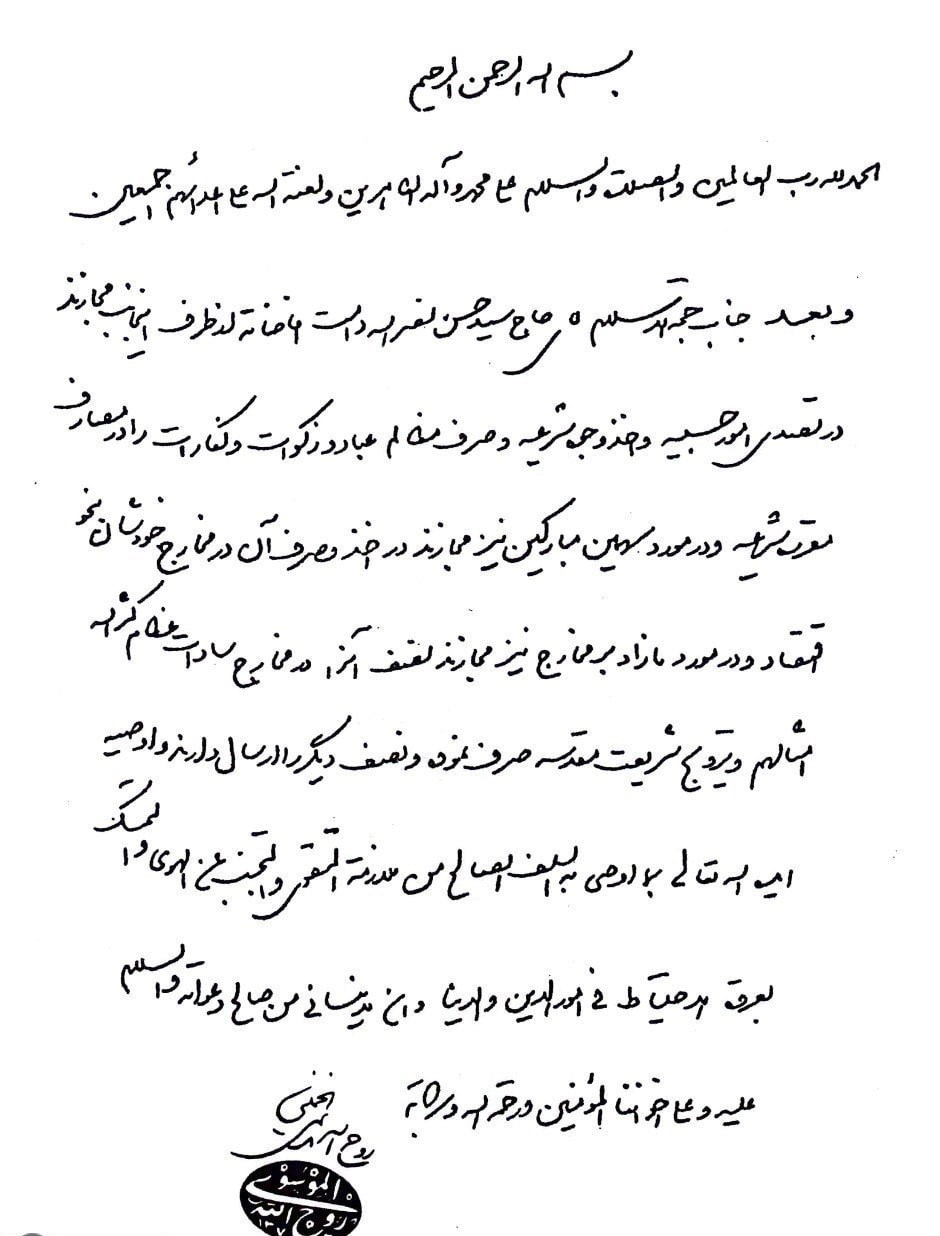 بسم الله الرحمن الرحیم
الحمد لله رب العالمین والصلوة والسلام علی محمد وآله الطاهرین ولعنة الله علی اعدائهم اجمعین
وبعد جناب حجة الاسلام حاج سید حسن نصرالله دامت افاضاته از طرف اینجانب مجازند
در تصدی امور حسبیه واخذ وجوه شرعیه وصرف مظالم عباد وزکوات وکفارات را در مصارف
مقرره شرعیه ودر مورد سهمین مبارکین نیز مجازند در اخذ وصرف آن در مخارج خودشان بنحو
اقتصاد ودر مورد مازاد بر مخارج نیز مجازند نصف آنرا در مخارج سادات عظام کثر الله
امثالهم وترویج شریعت مقدسه صرف نموده ونصف دیگر را ارسال دارند واوصیه
ایده الله تعالی بما اوصی به السلف الصالح من ملازمة التقوی والتجنب عن الهوی والتمسک
بعروة الاحتیاط فی امور الدین والدنیا وان لا ینسانی من صالح دعواته والسلام
علیه وعلی اخواننا المؤمنین ورحمة الله وبرکاته
روح الله الموسوی الخمینی
الموسوی
روح الله